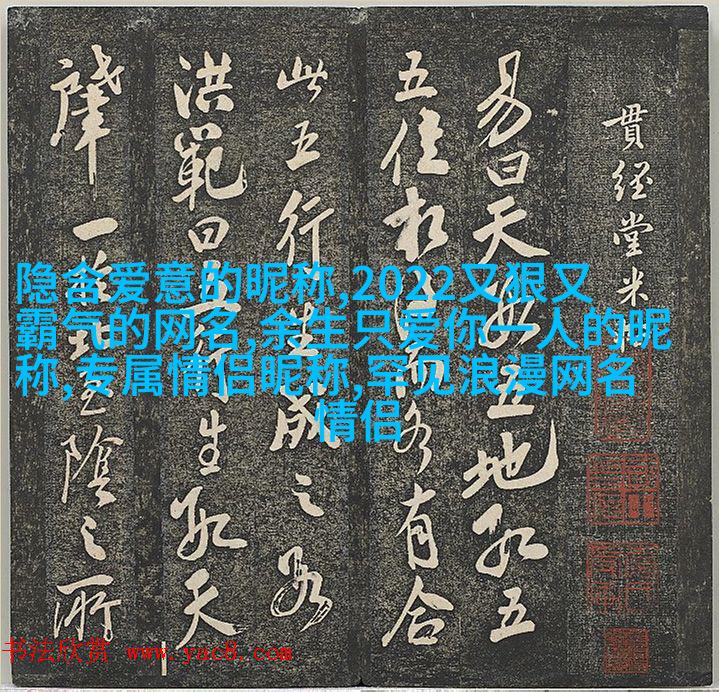 貫經堂米
易曰天數五地數五
五位相得而各有合
此五行生成之數
洪範曰五行生數天
肇一 陰之所
隐含爱意的昵称,2022又狠又
霸气的网名,余生只爱你一人的昵
称,专属情侣昵称,罕见浪漫网名
情侣
书法欣赏 www.yac8.com